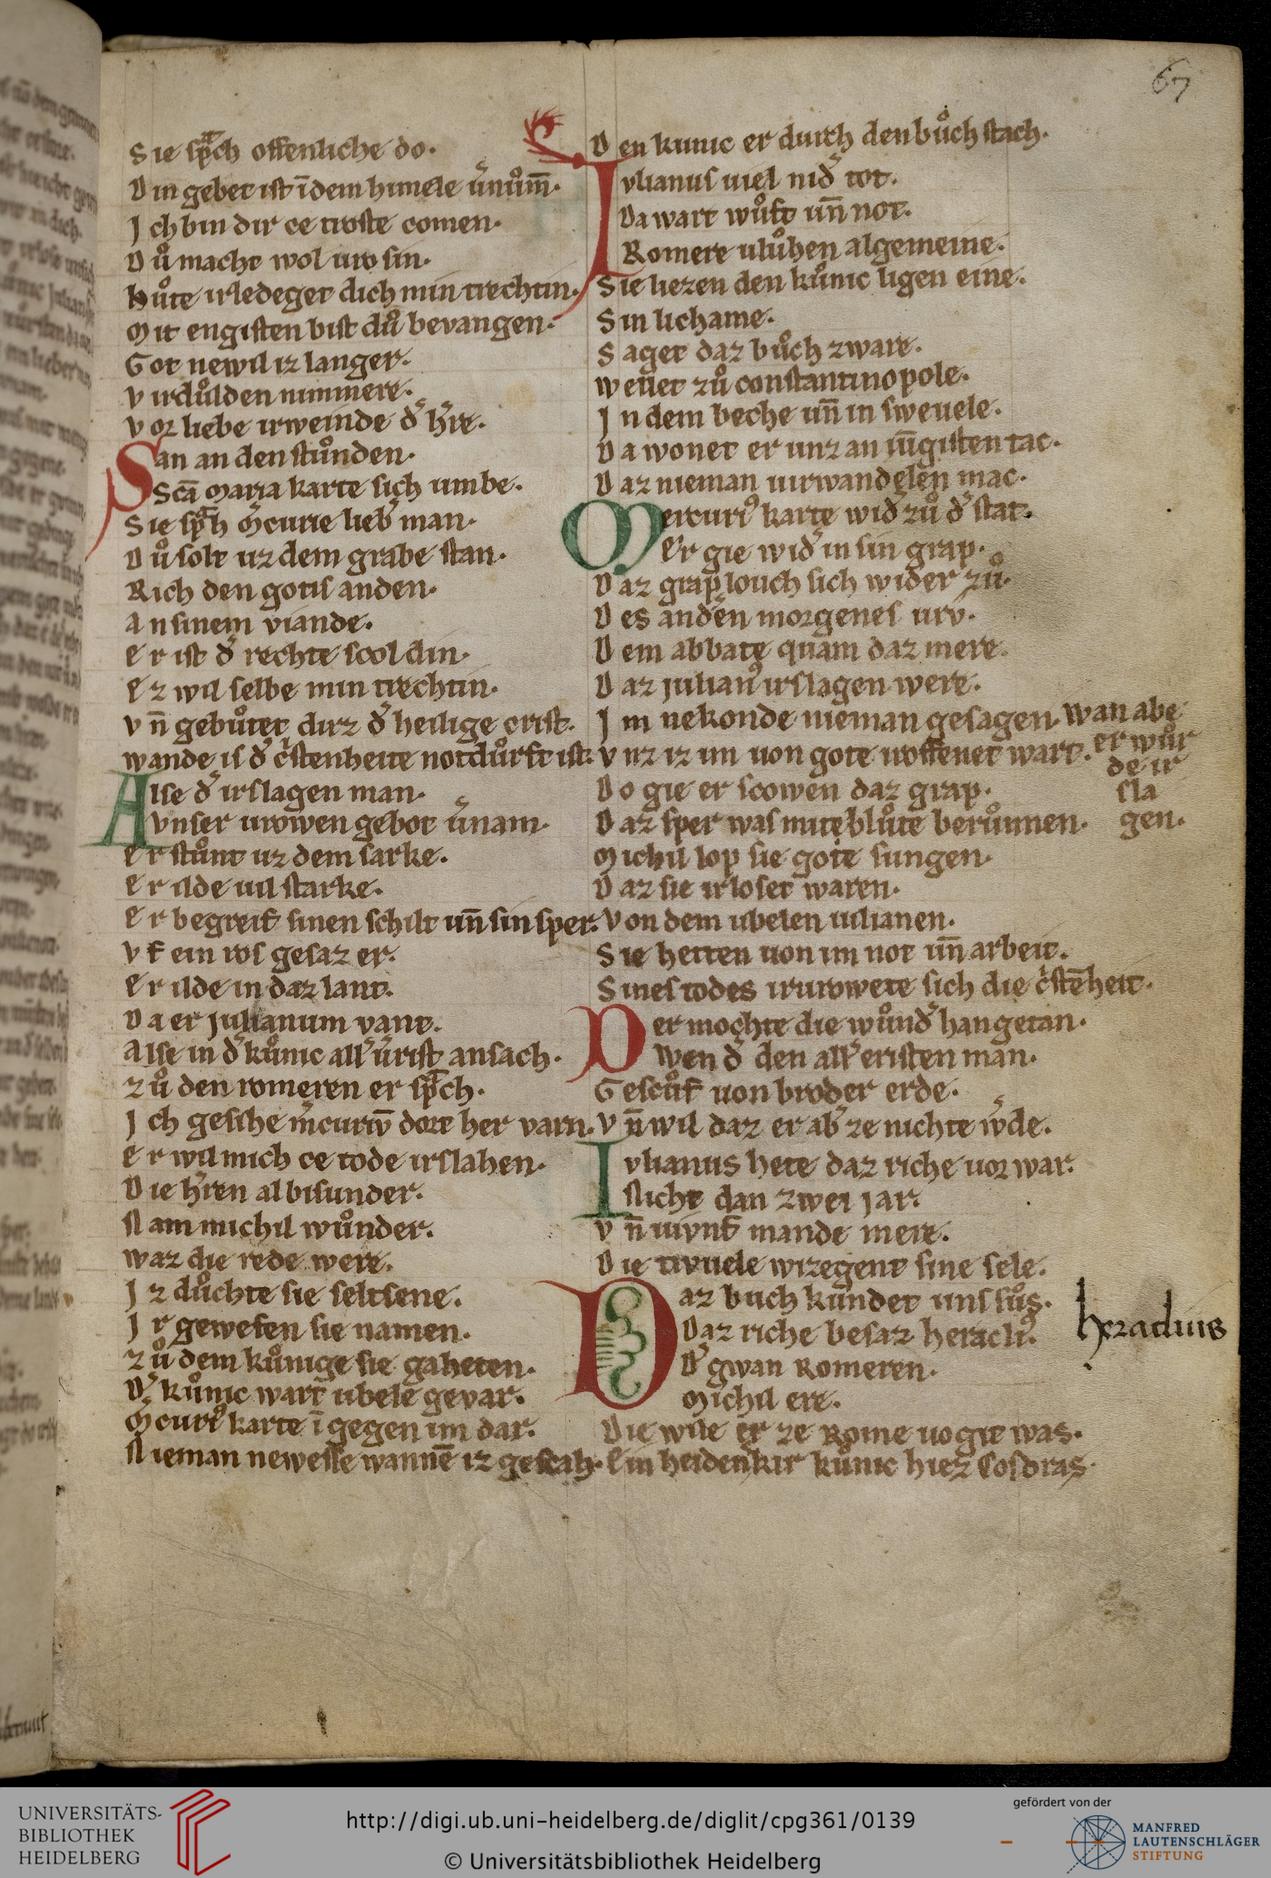 67
Sie sp̃ch offenliche do.
Din gebet ist ĩdem himele v̾nům̄.
Ich bin dir ce troste comen.
Dů macht wol uro sin.
hůte irledeget dich min trechtin.
Mit engisten bist dů bevangen.
Got newil iz langer.
virdůlden nimmere.
vor liebe irweinde d̾ h̾re.
San an den stůnden.
Sc̄a maria karte sich umbe.
Sie sp̃ch m̾curie lieb̾ man.
Dů solt uz dem grabe stan.
Rich den gotis anden.
an sinem viande.
er ist d̾ rechte scol din.
ez wil selbe min trechtin.
vn̄ gebůtet dirz d̾ heilige crist.
wande is d̾ c̾stenheite notdůrft ist.
Alse d̾ irslagen man.
vnser urowen gebot v̾nam.
er stůnt uz dem sarke.
er ilde uil starke.
er begreif sinen schilt un̄ sin sper.
vf ein ros gesaz er.
er ilde in daz lant.
Da er julianum vant.
alse in d̾ kůnic all̾ v̾rist ansach.
zů den romeren er sp̃ch.
Ich gesihe m̾curiv̄ dort her varn.
er wil mich ce tode irslahen.
Die h̾ren albisunder.
Nam michil wůnder.
waz die rede were.
Iz důchte sie seltsene.
Ir gewefen sie namen.
zů dem kůnige sie gaheten.
D̾ kůnic wart ubele gevar.
M̾curi⁹ karte ĩ gegen im dar.
Nieman newesse wannē iz gescah.
Den kunic er durch den bůch stach.
Iulianus uiel nid̾ tot.
Da wart wůft un̄ not.
Romere vlůhen algemeine.
Sie liezen den kůnic ligen eine.
Sin lichame.
Saget daz bůch zware.
wellet zů constantinopole.
In dem beche un̄ in sweuele.
Da wonet er unz an iu̅gisten tac.
Daz nieman uirwandelen mac.
Mercuri⁹ karte wid̾ zů d̾ stat.
Er gie wid̾ in sin grap.
Daz grap louch sich wider zů.
Des and̾en morgenes urv.
Dem abbate quam daz mere.
Daz julian⁹ irslagen were.
Im nekonde nieman gesagen. wan abe
er wůr
de ir
sla
gen.
vnz iz im uon gote uroffenet wart.
Do gie er scowen daz grap.
Daz sper was mite blůte berůnnen.
Michil lop sie gote sungen.
Daz sie irloset waren.
Von dem ubelen iulianen.
Sie hetten uon im not un̄ arbeit.
Sines todes irurowete sich die c̾stēheit.
Der mochte die wůnd̾ han getan.
Wen d̾ den all̾ eristen man.
Gescůf uon broder erde.
vn̄ wil daz er ab̾ ze nichte w̾de.
Iulianus hete daz riche uor war.
Niche dan zwei jar.
vn̄ uivnf mande mere.
Die tivuele wizegent sine sele.
Daz buch kůndet uns sůs.
Daz riche besaz heracli⁹.
D̾ gwan Romeren.
Michil ere.
heraclius
Die wile er ze Rome uoget was.
Ein heiden kir kůnic hiez Cosdras.
UNIVERSITÄTS-
BIBLIOTHEK
HEIDELBERG
http://digi.ub.uni-heidelberg.de/diglit/cpg361/0139
© Universitätsbibliothek Heidelberg
gefördert von der
MANFRED
LAUTENSCHLÄGER
STIFTUNG